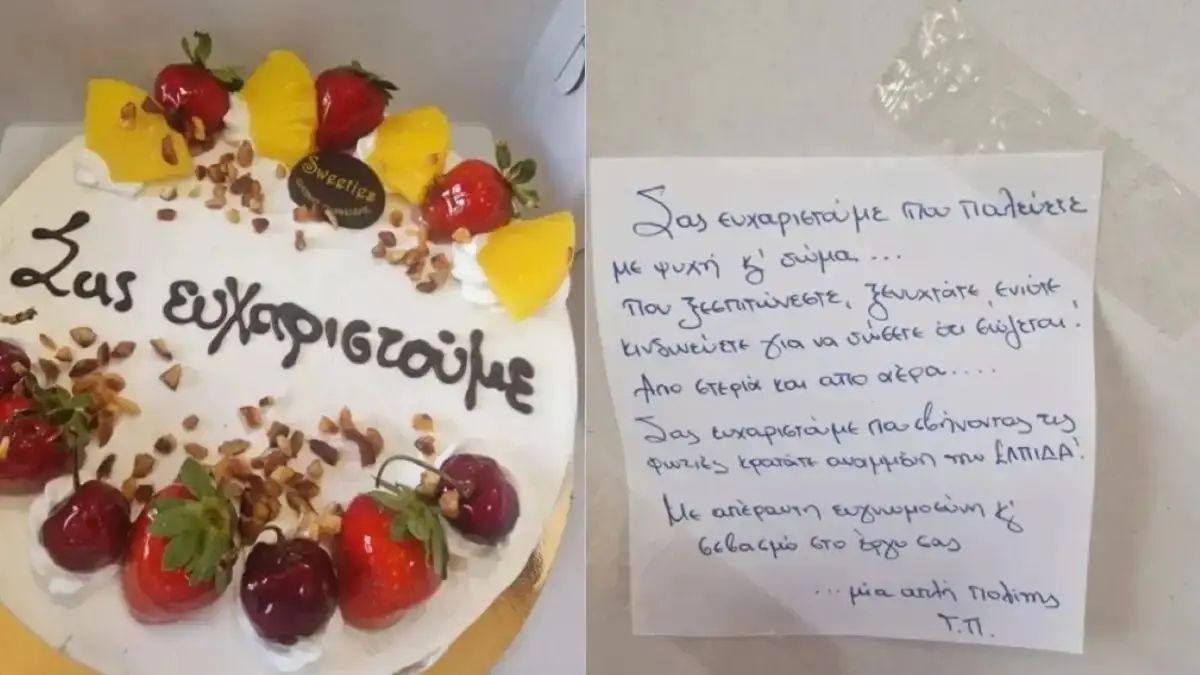 Sweeties
Σας ευχαριστούμε
Σας ευχαριστούμε που παλεύετε
με ψυχή κ' σώμα...
που ξεσπιτώνεστε, ξενυχτάτε, ενίοτε
κινδυνεύετε για να σώσετε ότι σώζεται!
Απο στεριά και απο αέρα....
Σας ευχαριστούμε που σβήνοντας τις
φωτιές κρατάτε αναμμένη την ΕΛΠΙΔΑ!
Με απέραντη ευγνωμοσύνη κ'
σεβασμό στο έργο σας
...μία απλή πολίτης
Τ.Π.